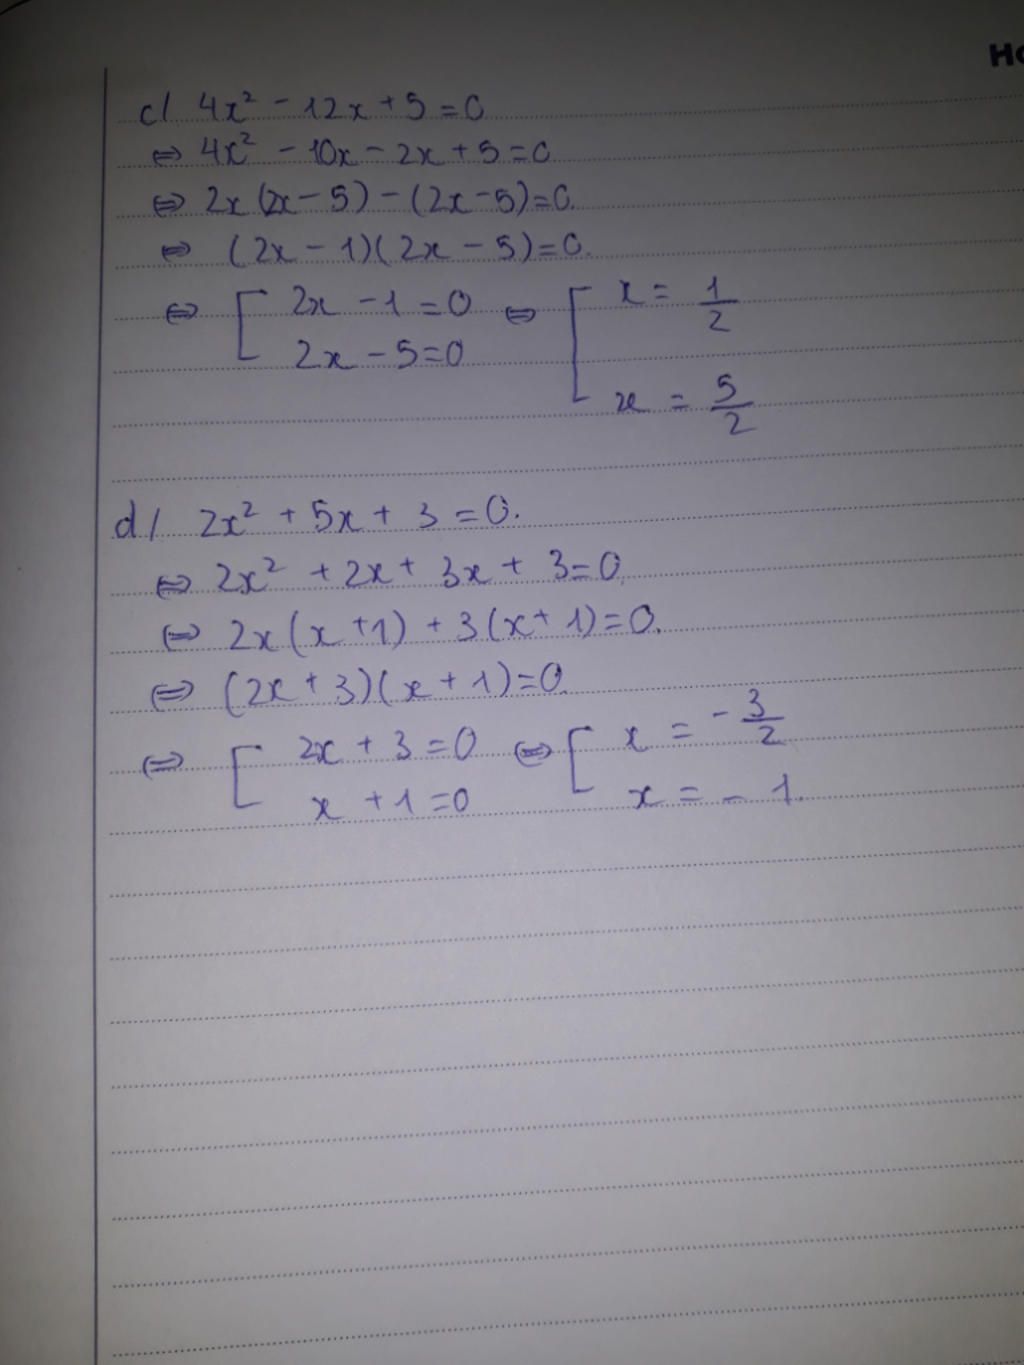 Ho
c/ 4x² - 12x + 5 = 0
⇔ 4x² - 10x - 2x + 5 = 0
⇔ 2x(2x - 5) - (2x - 5) = 0.
⇔ (2x - 1)(2x - 5) = 0.
⇔ [ 2x - 1 = 0 ⇔ [ x = 1/2
2x - 5 = 0
x = 5/2
d/ 2x² + 5x + 3 = 0.
⇔ 2x² + 2x + 3x + 3 = 0.
⇔ 2x(x + 1) + 3(x + 1) = 0.
⇔ (2x + 3)(x + 1) = 0.
⇔ [ 2x + 3 = 0 ⇔ [ x = -3/2
x + 1 = 0 x = - 1.